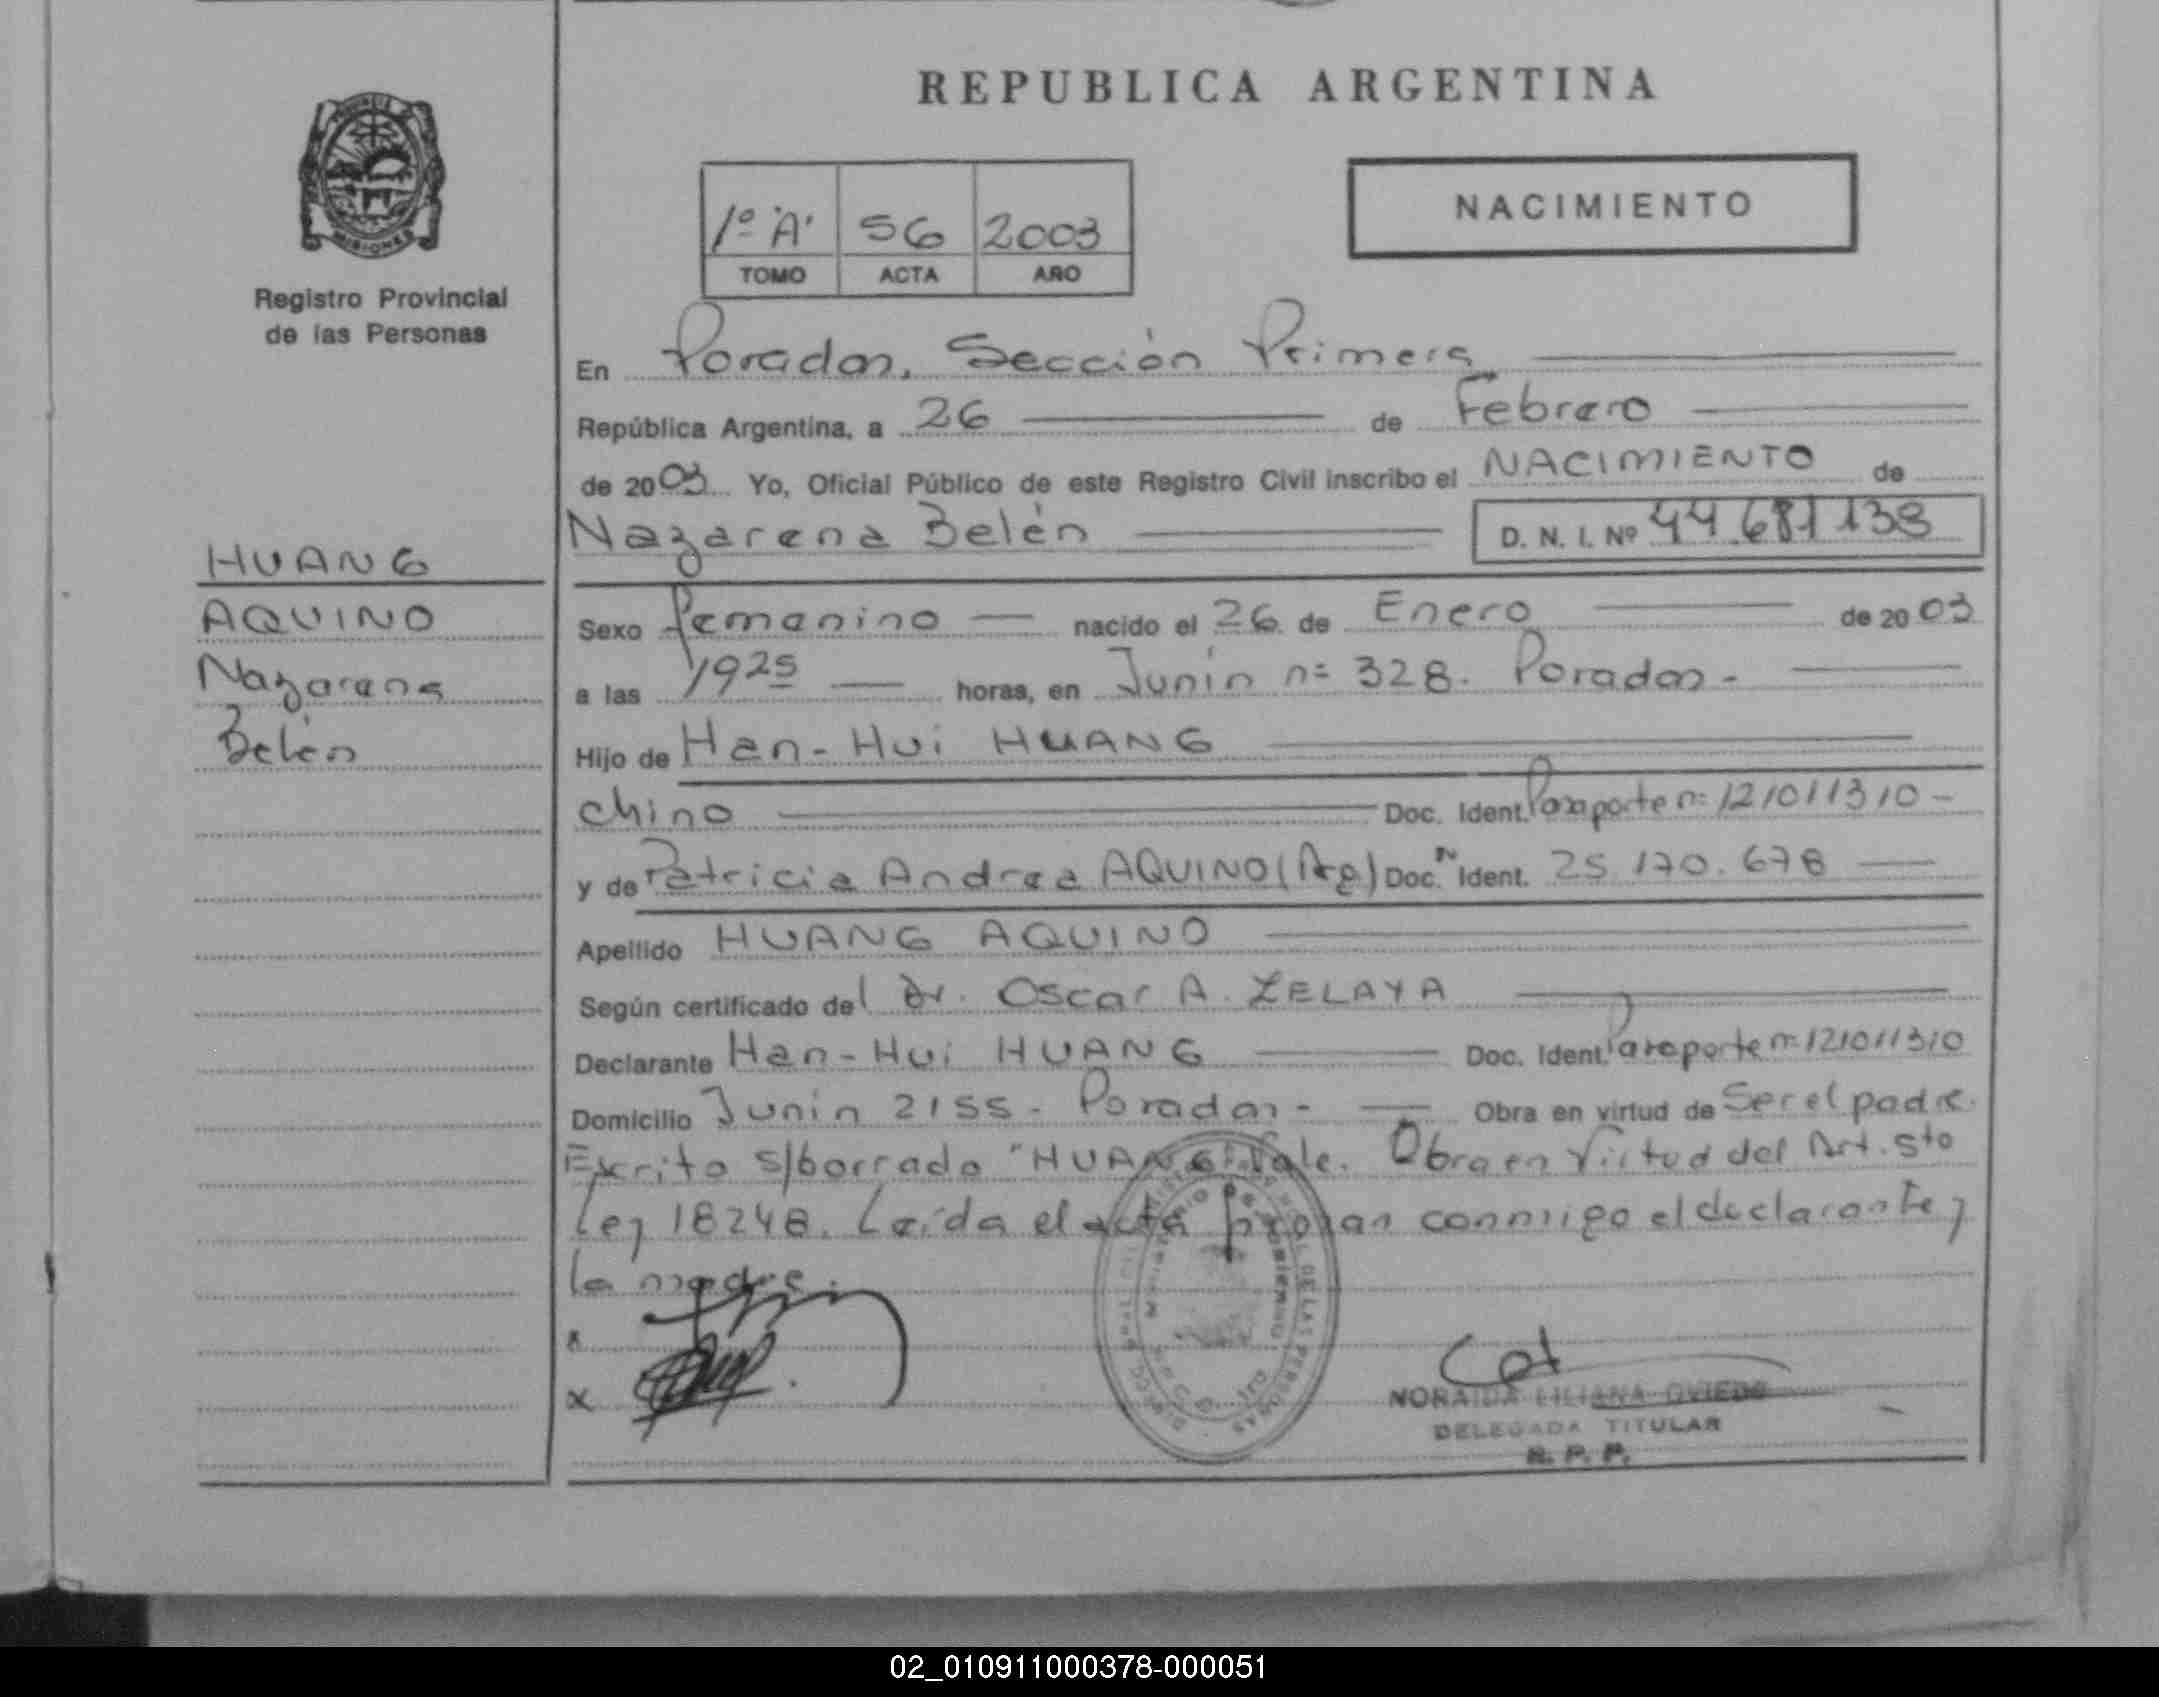 REPUBLICA ARGENTINA
MISIONES
Registro Provincial
de las Personas
1º "A" 56 2003
TOMO ACTA AÑO
NACIMIENTO
En Posadas, Sección Primera
República Argentina, a 26 de Febrero
de 2003 Yo, Oficial Público de este Registro Civil inscribo el NACIMIENTO de
Nazarena Belén D. N. I. Nº 44.681.138
HUANG
AQUINO
Nazarena
Belén
Sexo femenino nacido el 26 de Enero de 2003
a las 19 25 horas, en Junín nº 328. Posadas-
Hijo de Han-Hui HUANG
chino Doc. Ident. Pasaporte nº 121011310-
y de Patricia Andrea AQUINO (Arg) Doc. Ident. Nº 25.170.678
Apellido HUANG AQUINO
Según certificado del Dr. Oscar A. ZELAYA
Declarante Han-Hui HUANG Doc. Ident. Pasaporte nº 121011310
Domicilio Junín 2155- Posadas- Obra en virtud de Ser el padre.
Escrito s/borrado "HUANG" Vale. Obra en Virtud del Art. 5to
Ley 18248. Leída el acta firman conmigo el declarante y
la madre.
x
x
NORAIDA LILIANA OVIEDO
DELEGADA TITULAR
R. P. P.
02_010911000378-000051